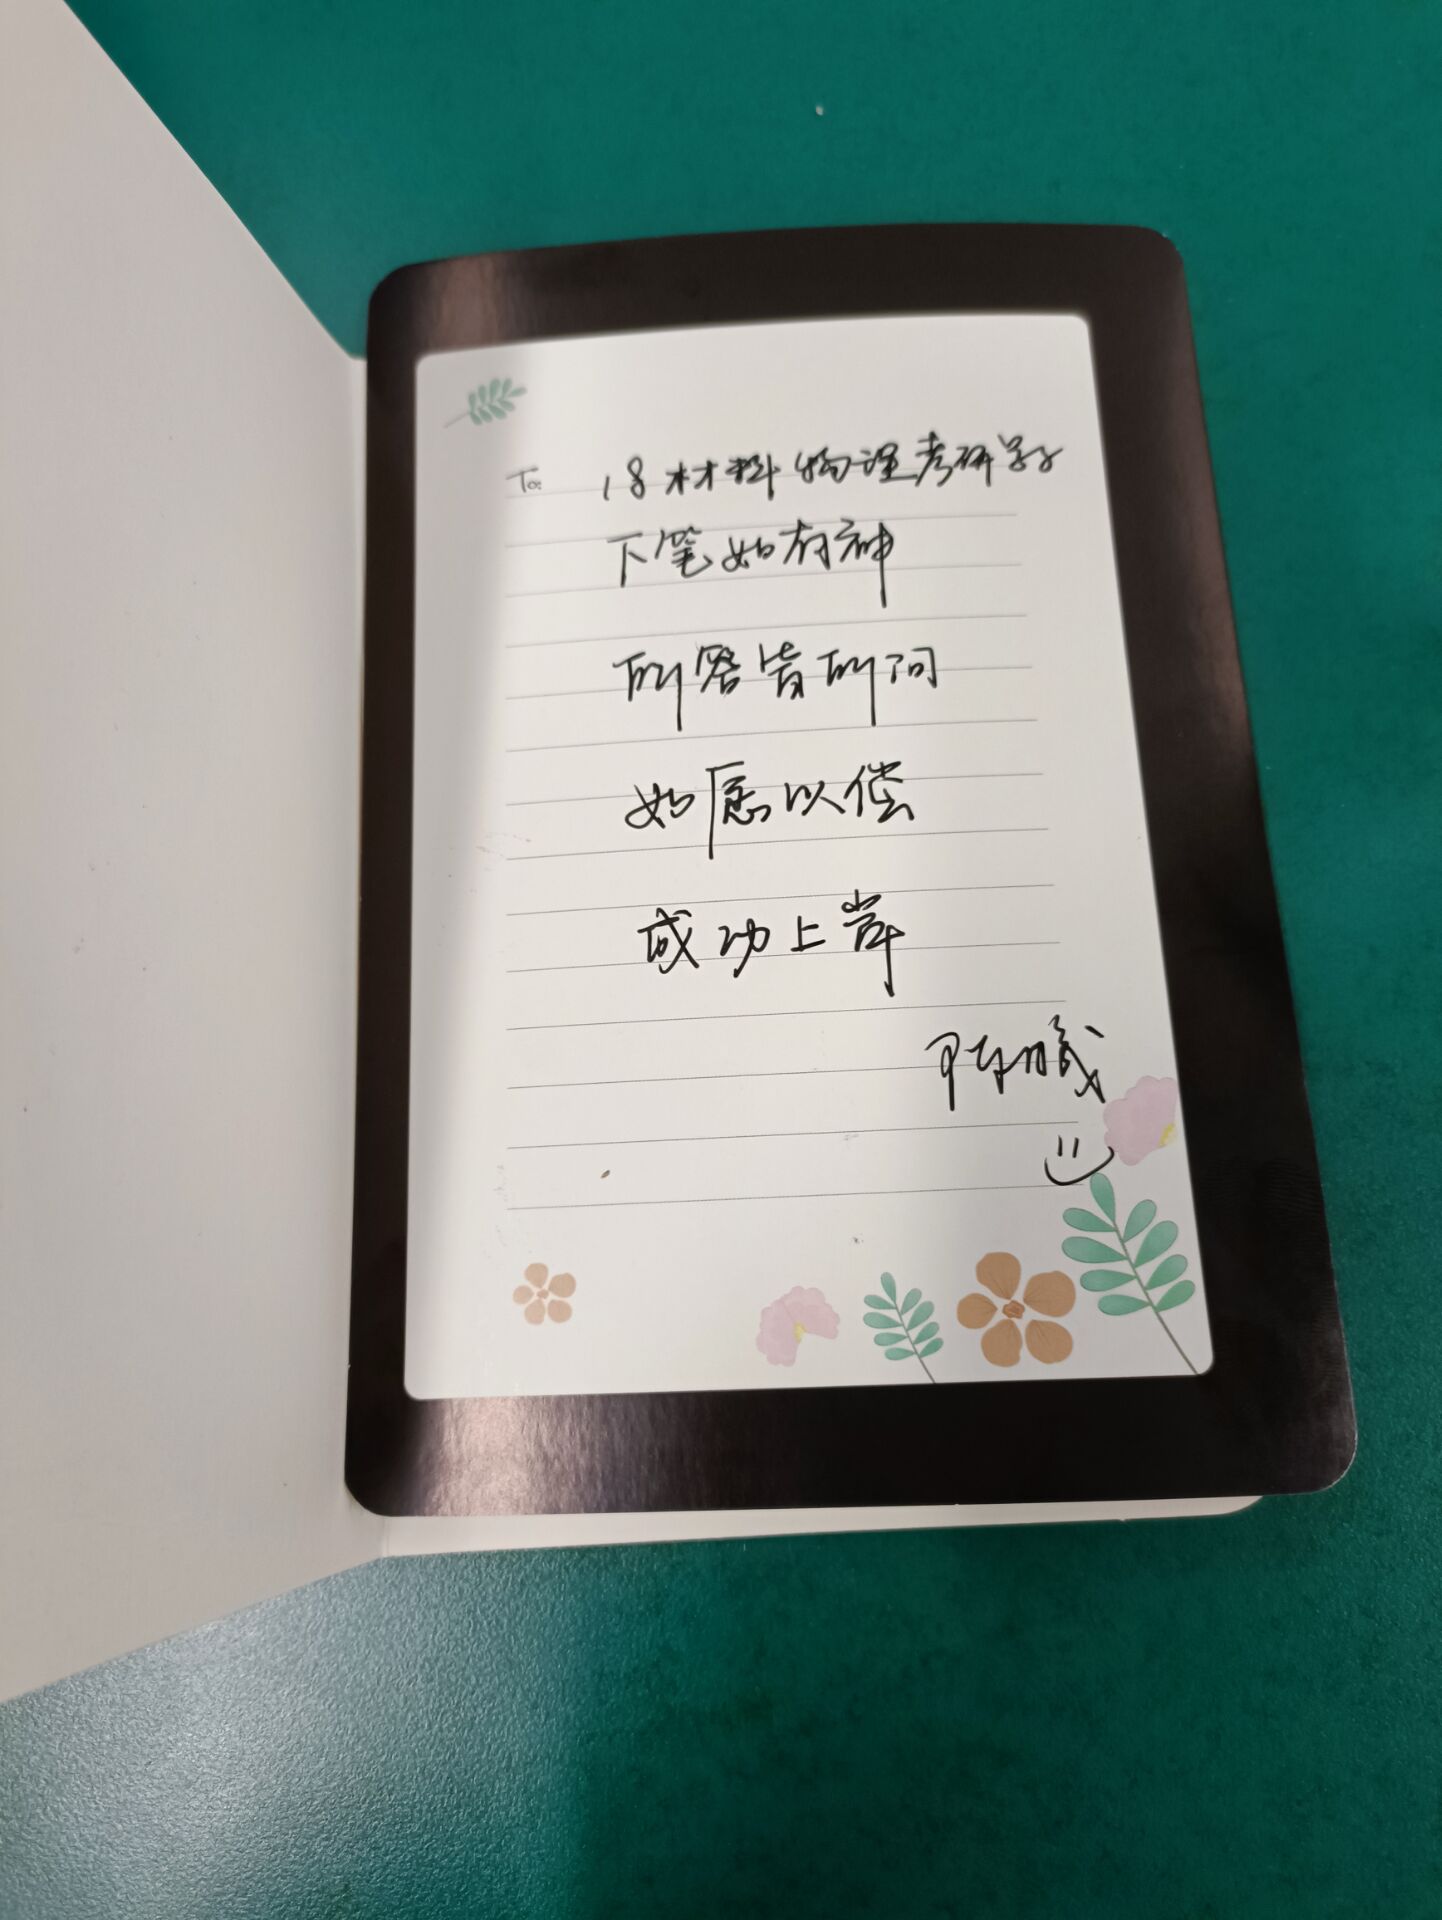 To: 18材料物理考研学子
下笔如有神
所答皆所问
如愿以偿
成功上岸